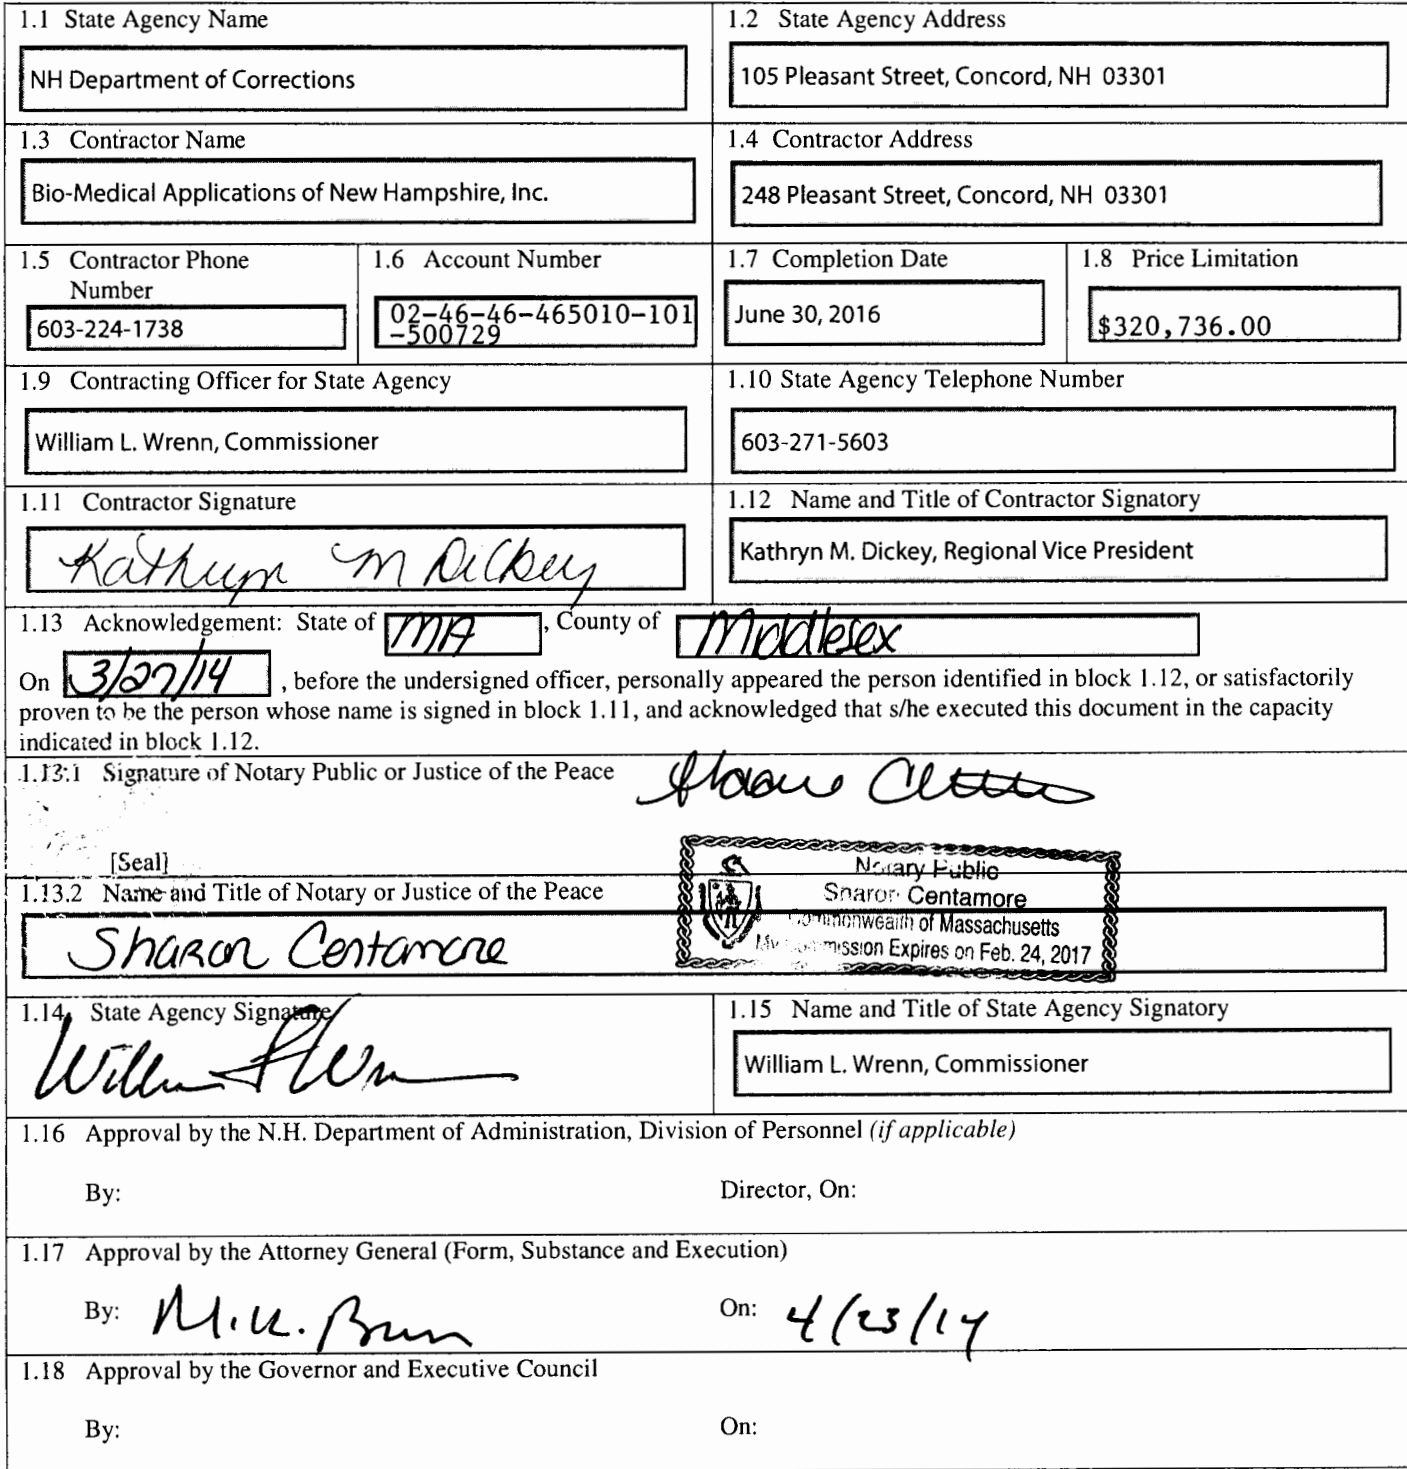 1.1 State Agency Name
NH Department of Corrections
1.2 State Agency Address
105 Pleasant Street, Concord, NH 03301
1.3 Contractor Name
Bio-Medical Applications of New Hampshire, Inc.
1.4 Contractor Address
248 Pleasant Street, Concord, NH 03301
1.5 Contractor Phone
Number
603-224-1738
1.6 Account Number
02-46-46-465010-101
-500729
1.7 Completion Date
June 30, 2016
1.8 Price Limitation
$320,736.00
1.9 Contracting Officer for State Agency
William L. Wrenn, Commissioner
1.10 State Agency Telephone Number
603-271-5603
1.11 Contractor Signature
Kathryn M Dickey
1.12 Name and Title of Contractor Signatory
Kathryn M. Dickey, Regional Vice President
1.13 Acknowledgement: State of MA, County of Middlesex
On 3/27/14, before the undersigned officer, personally appeared the person identified in block 1.12, or satisfactorily
proven to be the person whose name is signed in block 1.11, and acknowledged that s/he executed this document in the capacity
indicated in block 1.12.
1.13.1 Signature of Notary Public or Justice of the Peace
[Seal]
Notary Public
Sharon Centamore
Commonwealth of Massachusetts
My Commission Expires on Feb. 24, 2017
1.13.2 Name and Title of Notary or Justice of the Peace
Sharon Centamore
1.14 State Agency Signature
1.15 Name and Title of State Agency Signatory
William L. Wrenn, Commissioner
1.16 Approval by the N.H. Department of Administration, Division of Personnel (if applicable)
By:
Director, On:
1.17 Approval by the Attorney General (Form, Substance and Execution)
By:
On: 4/23/14
1.18 Approval by the Governor and Executive Council
By:
On: